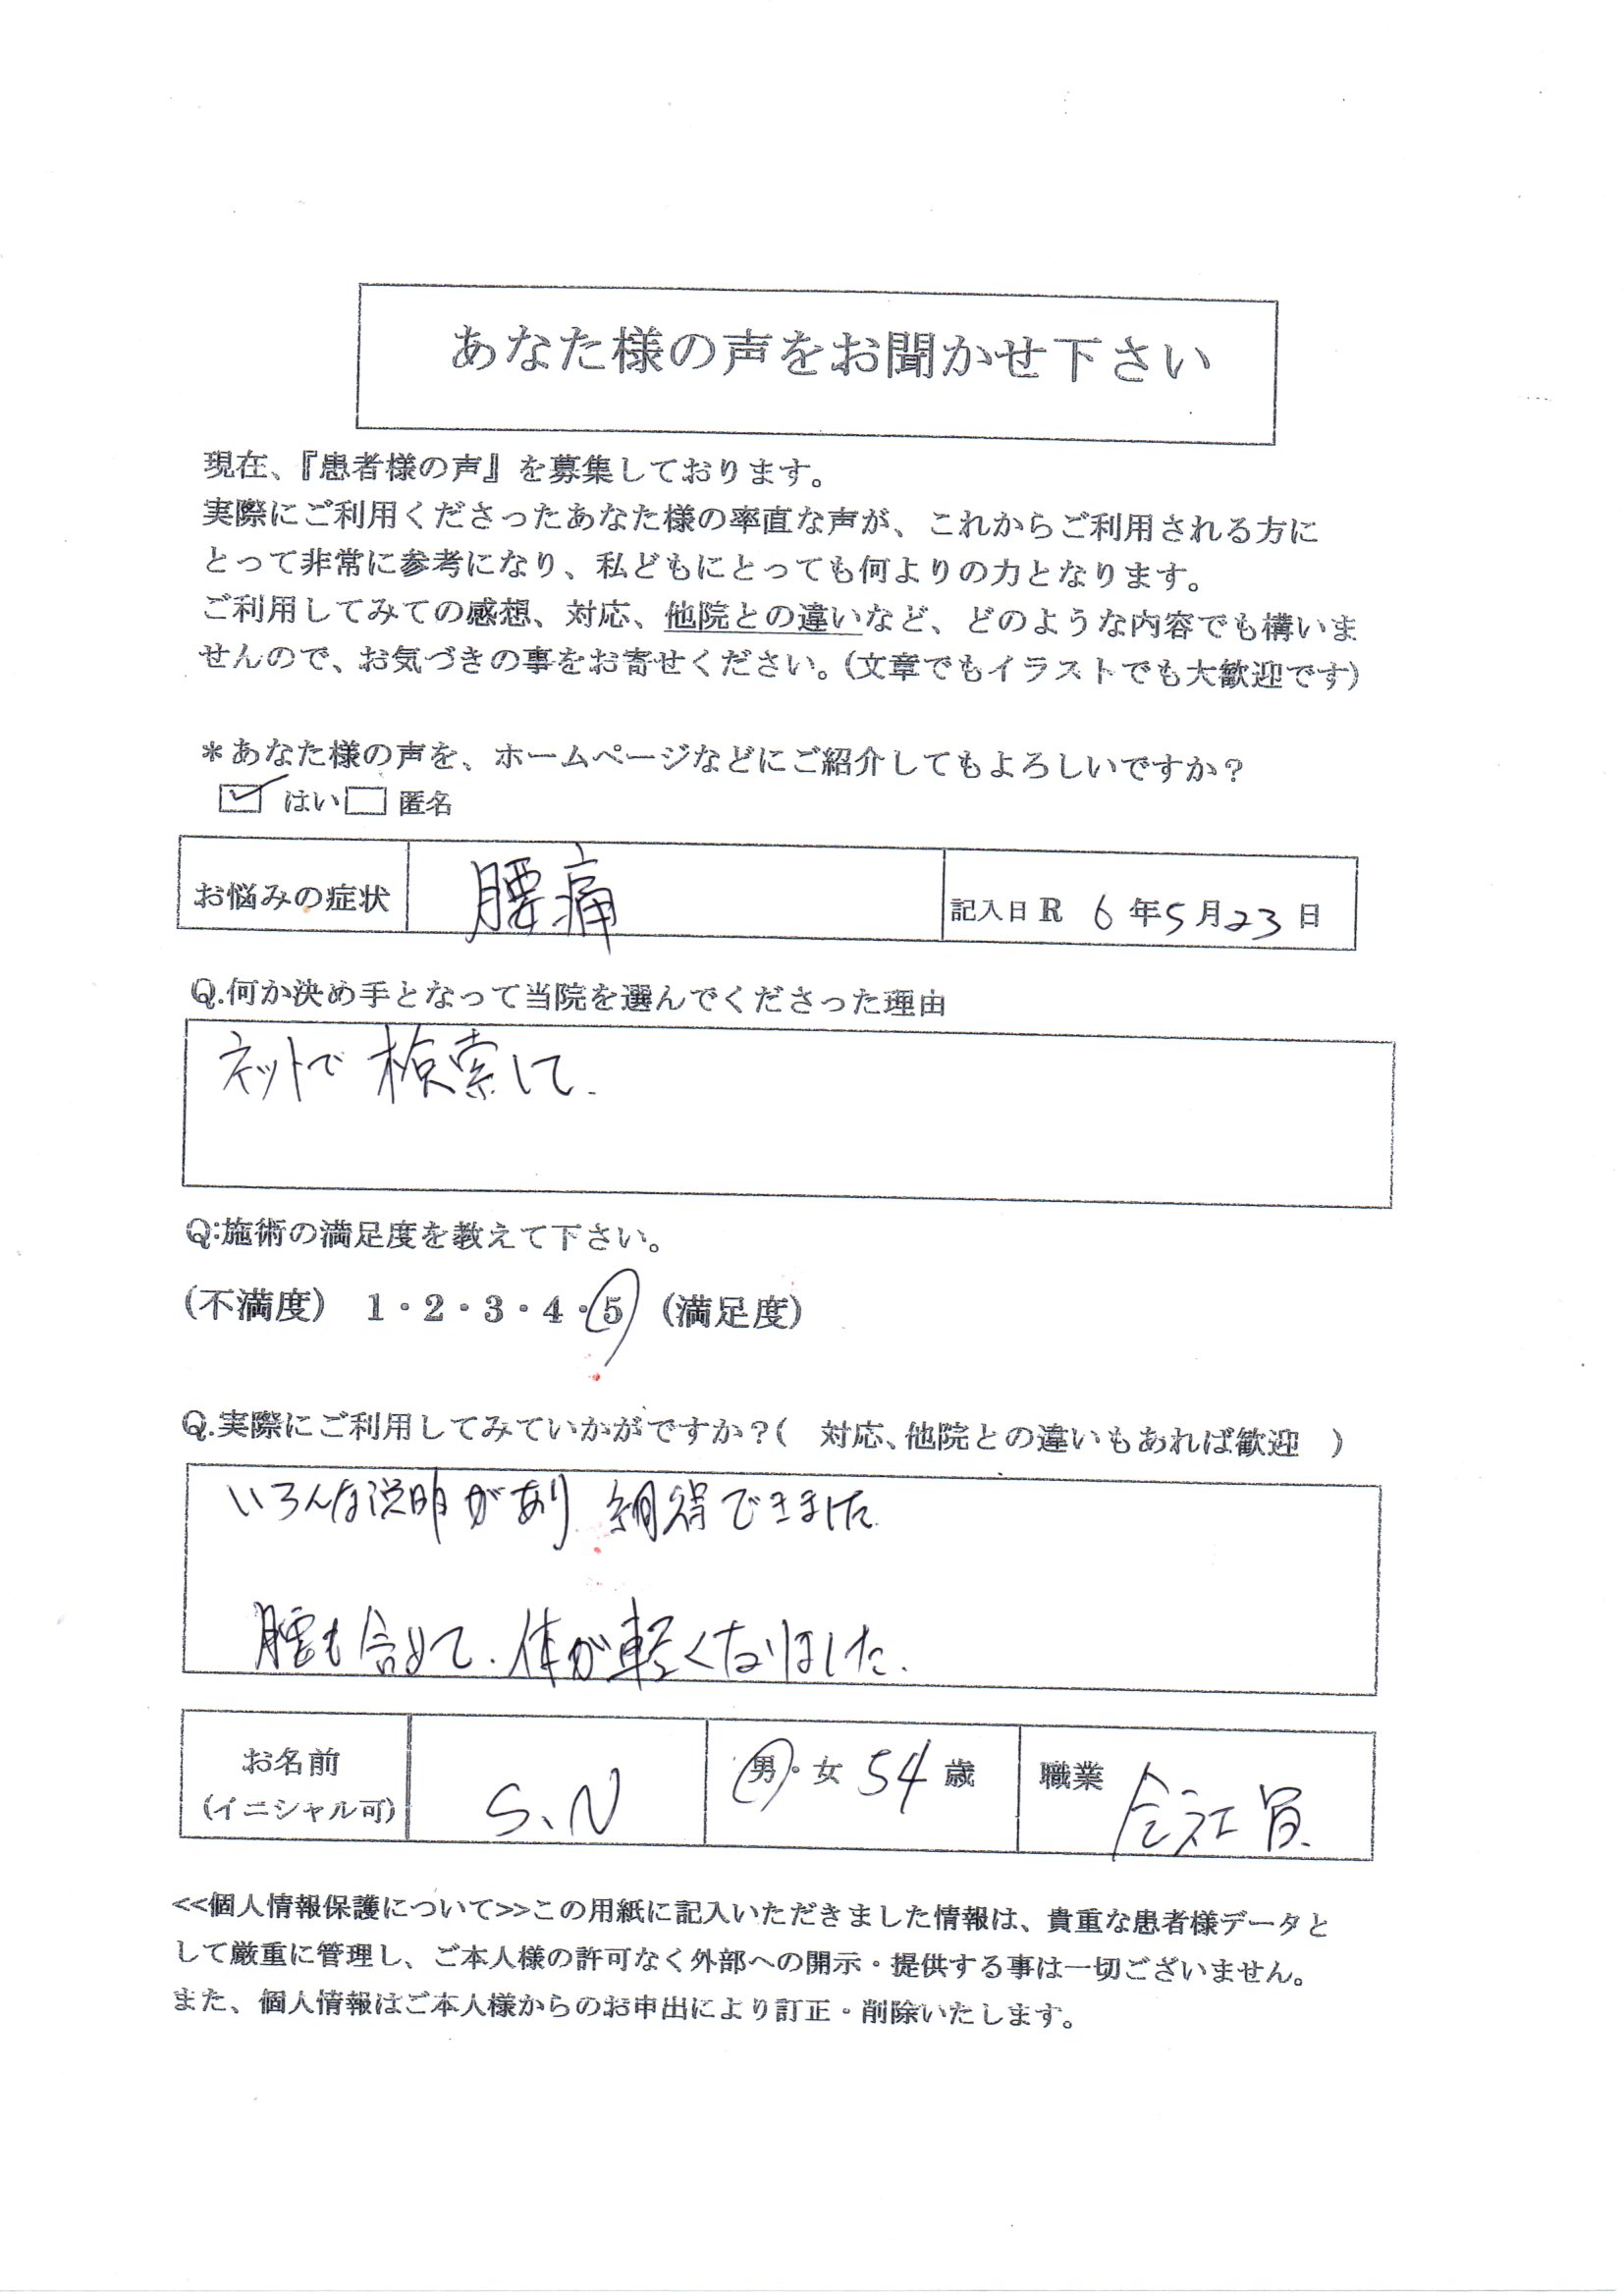 あなた様の声をお聞かせ下さい
現在、『患者様の声』を募集しております。
実際にご利用くださったあなた様の率直な声が、これからご利用される方に
とって非常に参考になり、私どもにとっても何よりの力となります。
ご利用してみての感想、対応、他院との違いなど、どのような内容でも構いま
せんので、お気づきの事をお寄せください。(文章でもイラストでも大歓迎です)
＊あなた様の声を、ホームページなどにご紹介してもよろしいですか？
☑ はい □ 匿名
お悩みの症状 腰痛 記入日 R 6 年 5 月 23 日
Q.何か決め手となって当院を選んでくださった理由
ネットで検索して.
Q:施術の満足度を教えて下さい。
(不満度) 1・2・3・4・5 (満足度)
Q.実際にご利用してみていかがですか？( 対応、他院との違いもあれば歓迎 )
いろんな説明があり 納得できました.
腰も含めて.体が軽くなりました.
お名前 (イニシャル可) S、N 男・女 54 歳 職業 会社員.
<<個人情報保護について>>この用紙に記入いただきました情報は、貴重な患者様データと
して厳重に管理し、ご本人様の許可なく外部への開示・提供する事は一切ございません。
また、個人情報はご本人様からのお申出により訂正・削除いたします。